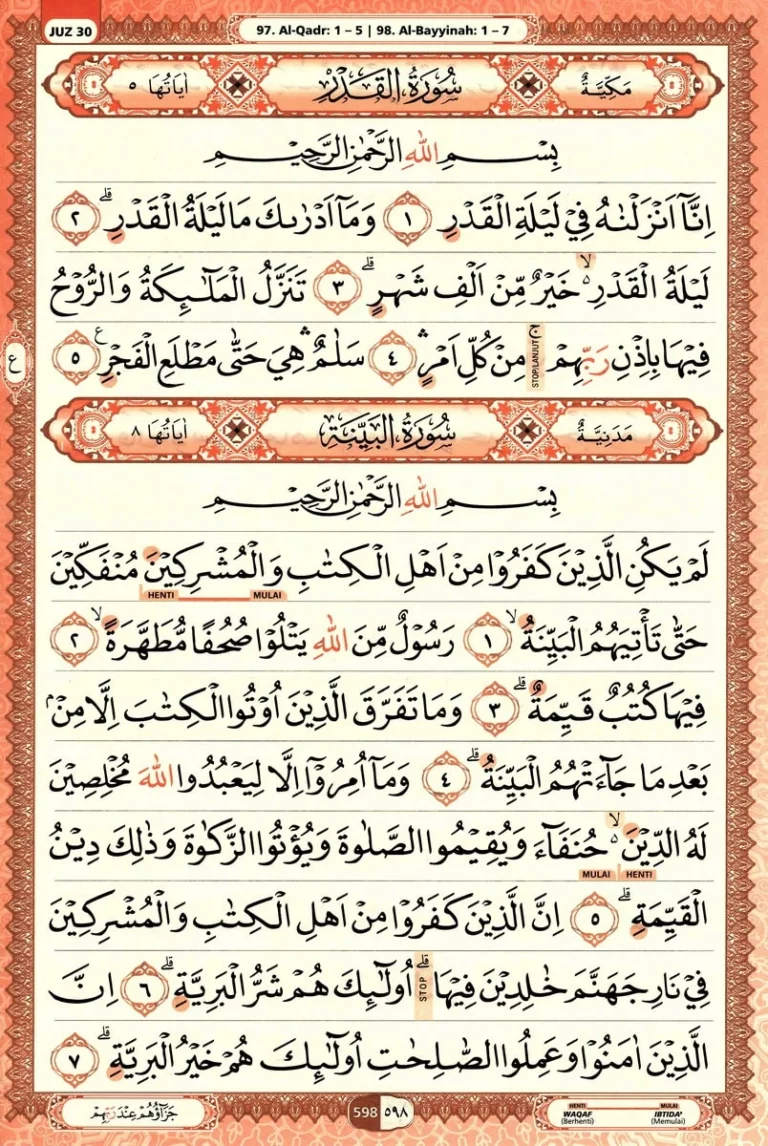 JUZ 30
97. Al-Qadr: 1 – 5 | 98. Al-Bayyinah: 1 – 7
مَكِّيَّةٌ سُوْرَةُ الْقَدْرِ اٰيَاتُهَا ٥
بِسْمِ اللّٰهِ الرَّحْمٰنِ الرَّحِيْمِ
اِنَّآ اَنْزَلْنٰهُ فِيْ لَيْلَةِ الْقَدْرِ ١ وَمَآ اَدْرٰىكَ مَا لَيْلَةُ الْقَدْرِۗ ٢
لَيْلَةُ الْقَدْرِ ەۙ خَيْرٌ مِّنْ اَلْفِ شَهْرٍۗ ٣ تَنَزَّلُ الْمَلٰۤىِٕكَةُ وَالرُّوْحُ
فِيْهَا بِاِذْنِ رَبِّهِمْۚ STOP/LANJUT مِنْ كُلِّ اَمْرٍۛ ٤ سَلٰمٌ ۛهِيَ حَتّٰى مَطْلَعِ الْفَجْرِ ع ٥
ع
مَدَنِيَّةٌ سُوْرَةُ الْبَيِّنَةِ اٰيَاتُهَا ٨
بِسْمِ اللّٰهِ الرَّحْمٰنِ الرَّحِيْمِ
لَمْ يَكُنِ الَّذِيْنَ كَفَرُوْا مِنْ اَهْلِ الْكِتٰبِ وَالْمُشْرِكِيْنَ مُنْفَكِّيْنَ
HENTI MULAI
حَتّٰى تَأْتِيَهُمُ الْبَيِّنَةُۙ ١ رَسُوْلٌ مِّنَ اللّٰهِ يَتْلُوْا صُحُفًا مُّطَهَّرَةًۙ ٢
فِيْهَا كُتُبٌ قَيِّمَةٌۗ ٣ وَمَا تَفَرَّقَ الَّذِيْنَ اُوْتُوا الْكِتٰبَ اِلَّا مِنْۢ
بَعْدِ مَا جَآءَتْهُمُ الْبَيِّنَةُۗ ٤ وَمَآ اُمِرُوْٓا اِلَّا لِيَعْبُدُوا اللّٰهَ مُخْلِصِيْنَ
لَهُ الدِّيْنَ ەۙ حُنَفَآءَ وَيُقِيْمُوا الصَّلٰوةَ وَيُؤْتُوا الزَّكٰوةَ وَذٰلِكَ دِيْنُ
MULAI HENTI
الْقَيِّمَةِۗ ٥ اِنَّ الَّذِيْنَ كَفَرُوْا مِنْ اَهْلِ الْكِتٰبِ وَالْمُشْرِكِيْنَ
فِيْ نَارِ جَهَنَّمَ خٰلِدِيْنَ فِيْهَاۗ STOP اُولٰۤىِٕكَ هُمْ شَرُّ الْبَرِيَّةِۗ ٦ اِنَّ
الَّذِيْنَ اٰمَنُوْا وَعَمِلُوا الصّٰلِحٰتِ اُولٰۤىِٕكَ هُمْ خَيْرُ الْبَرِيَّةِۗ ٧
جَزَاۤؤُهُمْ عِنْدَ رَبِّهِمْ
598 ٥٩٨
HENTI
WAQAF
(Berhenti)
MULAI
IBTIDA'
(Memulai)